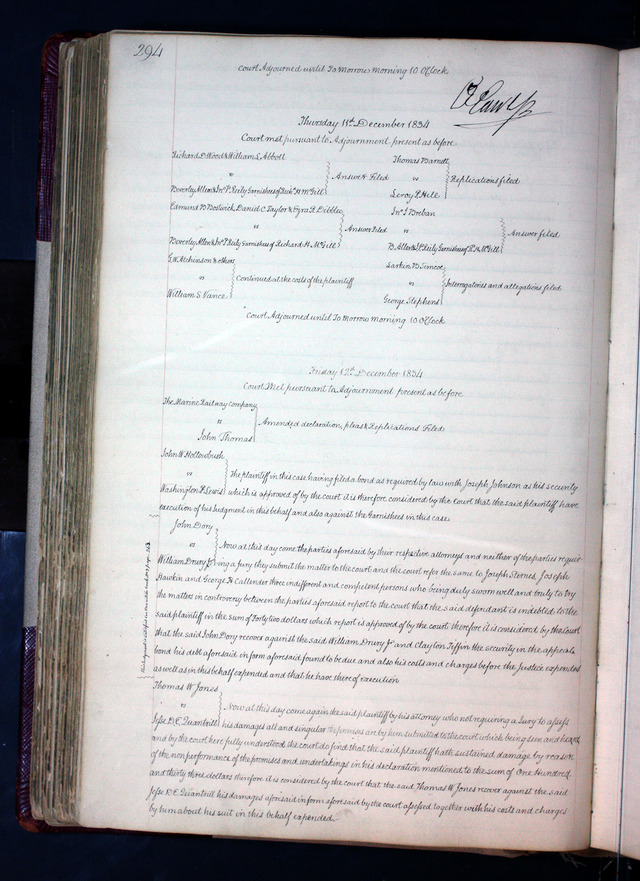 294
Court Adjourned until To morrow morning 10 O'Clock
Thursday 11th December 1834
Court met pursuant to Adjournment present as before
Richard D Wood & William L Abbott
vs
Answer Filed
Beverly Allen & Jno P Reily Garnishees of Rich H McGill
Thomas Barnett
vs
Replications filed
Leroy P Hill
Edmund B Bostwick, Daniel C Taylor & Ezra R Dibble
vs
Answer filed
Beverly Allen & Jno P Reily Garnishees of Richard H McGill
Jno J Breban
vs
Answer filed
B Allen & J P Reily Garnishees of R H McGill
E W Atchinson & others
vs
Continued at the costs of the plaintiff
William S Vance
Larkin B
vs
Interrogatories and allegations filed
George Stephens
Court Adjourned until To morrow morning 10 O'Clock
Friday 12th December 1834
Court Met pursuant to Adjournment present as before
The Marine Railway Company
vs
Amended declaration, pleas & Replications Filed
John Thomas
John W Hollowbush
vs
The plaintiff in this case having filed a bond as required by law with Joseph Johnson as his security
Washington P Lewis which is approved of by the court it is therefore considered by the Court that the said plaintiff have
execution of his Judgment in this behalf and also against the Garnishees in this case
John Dory
vs
Now at this day come the parties aforesaid by their respective attorneys and neither of the parties requir-
William Drury Jr ing a Jury they submit the matter to the court and the court refer the same to Joseph Stornes, Joseph
Hawkin and George H Callender three indifferent and competent persons who being duly sworn well and truly to try
the matters in controversy between the parties aforesaid report to the court that the said defendant is indebted to the
said plaintiff in the sum of Forty two dollars which report is approved of by the court therefore it is considered by the Court
that the said John Dory recover against the said William Drury Jr and Clayton Tiffin the security in the appeals
bond his debt aforesaid in form aforesaid found to be due and also his costs and charges before the Justice expended
as well as in this behalf expended and that he have thereof execution
Thomas W Jones
vs
Now at this day come again the said plaintiff by his attorney who not requiring a Jury to assess
Jesse D E Quantrill his damages all and singular the premises are by him submitted to the court which being seen and heard
and by the court here fully understood the court do find that the said plaintiff hath sustained damage by reason
of the non performance of the promises and undertakings in his declaration mentioned to the sum of One Hundred
and thirty three dollars therefore it is considered by the court that the said Thomas W Jones recover against the said
Jesse D E Quantrill his damages aforesaid in form aforesaid by the court assessed together with his costs and charges
by him about his suit in this behalf expended.